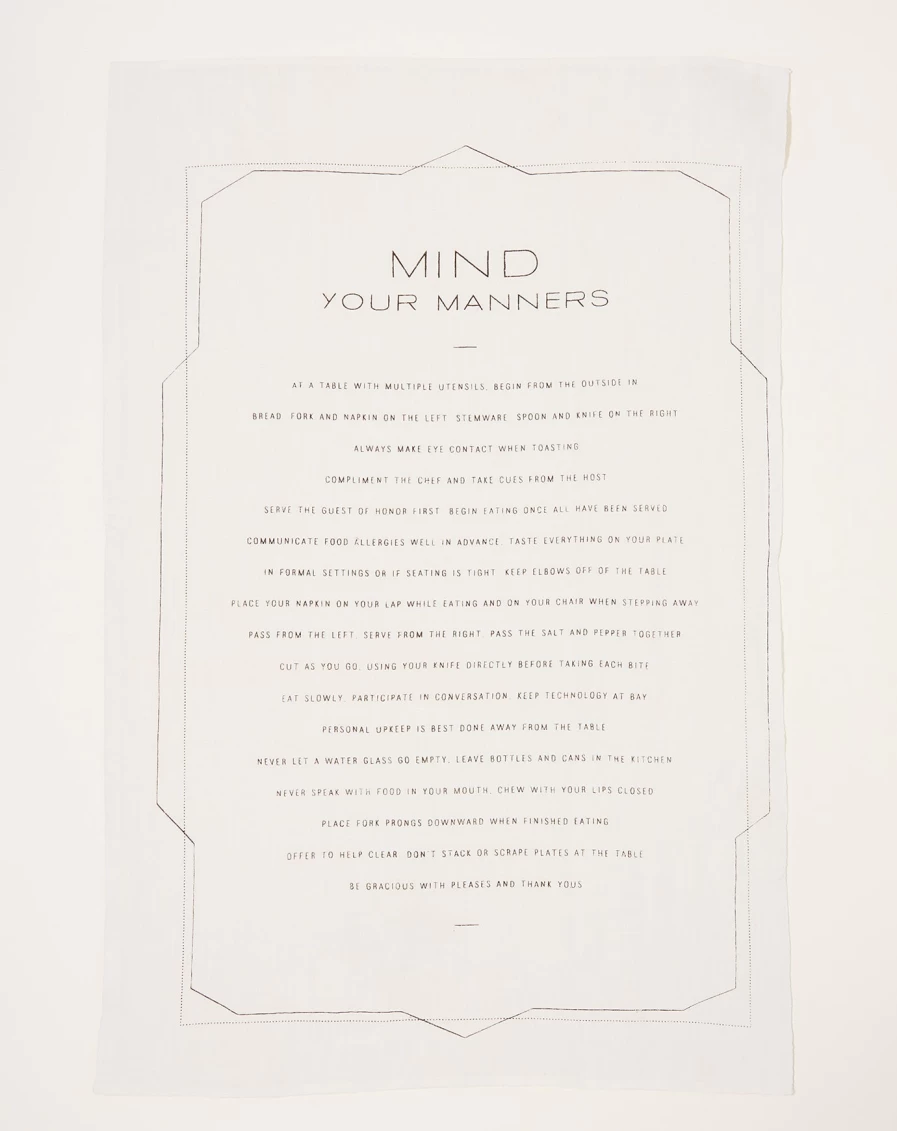 MIND
YOUR MANNERS
AT A TABLE WITH MULTIPLE UTENSILS, BEGIN FROM THE OUTSIDE IN
BREAD, FORK AND NAPKIN ON THE LEFT. STEMWARE, SPOON AND KNIFE ON THE RIGHT
ALWAYS MAKE EYE CONTACT WHEN TOASTING
COMPLIMENT THE CHEF AND TAKE CUES FROM THE HOST
SERVE THE GUEST OF HONOR FIRST. BEGIN EATING ONCE ALL HAVE BEEN SERVED
COMMUNICATE FOOD ALLERGIES WELL IN ADVANCE. TASTE EVERYTHING ON YOUR PLATE
IN FORMAL SETTINGS OR IF SEATING IS TIGHT, KEEP ELBOWS OFF OF THE TABLE
PLACE YOUR NAPKIN ON YOUR LAP WHILE EATING AND ON YOUR CHAIR WHEN STEPPING AWAY
PASS FROM THE LEFT. SERVE FROM THE RIGHT. PASS THE SALT AND PEPPER TOGETHER
CUT AS YOU GO, USING YOUR KNIFE DIRECTLY BEFORE TAKING EACH BITE
EAT SLOWLY. PARTICIPATE IN CONVERSATION. KEEP TECHNOLOGY AT BAY
PERSONAL UPKEEP IS BEST DONE AWAY FROM THE TABLE
NEVER LET A WATER GLASS GO EMPTY. LEAVE BOTTLES AND CANS IN THE KITCHEN
NEVER SPEAK WITH FOOD IN YOUR MOUTH. CHEW WITH YOUR LIPS CLOSED
PLACE FORK PRONGS DOWNWARD WHEN FINISHED EATING
OFFER TO HELP CLEAR. DON'T STACK OR SCRAPE PLATES AT THE TABLE
BE GRACIOUS WITH PLEASES AND THANK YOUS